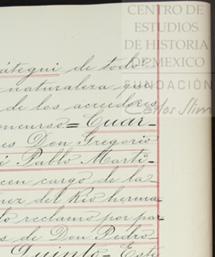 CENTRO DE
ESTUDIOS
DE HISTORIA
DE MEXICO
FUNDACIÓN
Carlos Slim
átegui de todo
naturaleza que
de los acreedores
oncurso = Cuar-
es Don Gregorio
Pablo Martí-
cen cargo de la
rez del Rio herma-
do reclamo por par
s de Don Pedro
Quinto = Este